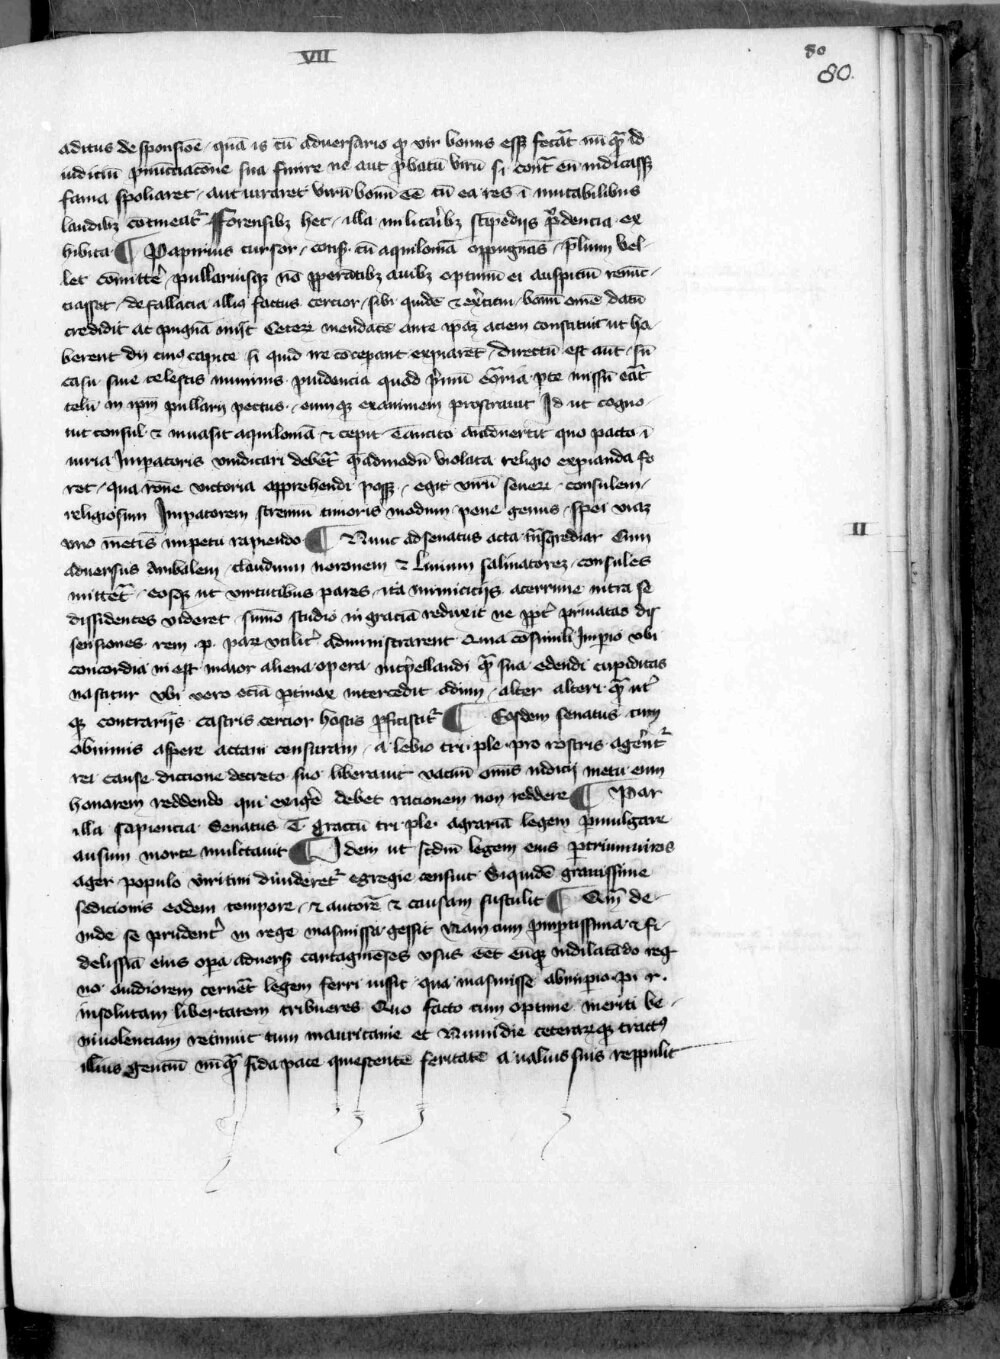 VII
80
80.
aditus de sponsiōe · quā is cū adversario qꝫ vir bonus essꝫ fecāt nūqꝫ id
iudiciū p̄nūcciacōne sua finire ne aut p̄batū virū si cont̄ eū iudicassꝫ
fama spoliaret · aut iuraret virū bonū ēē cū ea res ī inutabilibus
laudibꝫ cōtineat᷑ Fforensibꝫ hec · illa militaribꝫ stipēdijs p̄dencia ex
hibita ¶ Papirius cursor · cons̄ · cū aquilomā oppugnās · p̄lium vel-
let cōmitte᷑ · pullariusqꝫ nō ꝓperātibꝫ avibꝫ optimū ei auspiciū renūc-
ciasset · de fallacia illiꝰ factus cercior · sibi quidē ⁊ ex̄citui · bonū omē datū
credidit ac pugnā iniit Ceterꝝ mendacē ante ip̄aꝫ aciem constituit ut ha-
berent dij cuiꝰ capite si quid ire cōcepant expiarēt · directū est aut · sū
casu sive celestis numinis p̄videncia quod p̄imū cōtraria p̄te missū eāt
telū in ip̄m pullarij pectus · eumqꝫ exanimem prostravit Id ut cogno-
vit consul · ⁊ invasit aquilomā ⁊ cepit Tam cito aīadvertit quo pacto ī
iuria Impatoris vindicari debet᷑ q̄admodū violata religio expianda fo
ret · qua rōne victoria apprehendi possꝫ · egit virū severꝝ · consulem ·
religiosum Impatorem strenuū timoris modum · pene genus · spei viaꝫ
uno mētis impetu rapiendo ¶ Nunc ad senatus acta t̄nsgrediar Cum
adversus Anibalem · claudium neronem ⁊ Livium salinatoreꝫ · consules
mittet᷑ · eosqꝫ ut virtutibus pares · ita inimicicijs acerrime intra se
dissidentes videret · sūmo studio in graciā reduxit ne ꝓpt᷑ privatas dis
sensiones rem · p · par utilit᷑ administrarent Quia cōsimili Impio ubi
concordia in est maior aliena opera int̄pellandi q̄ sua edendi cupiditas
nascitur Ubi vero eciā p̄tinax intercedit odium · alter alteri q̄ ut᷑
qꝫ contrarijs castris cercior hostis p̄ficiscit᷑ ¶ Eosdem senatus cum
obnimis aspere actam censuram · a lebio tri · ple · pro rostris agerent᷑
rei cause diccione decreto suo liberavit vacuū oms̄ iudicij metu eum
honorem reddendo qui exige᷑ debet racionem non reddere ¶ Par
illa sapiencia Senatus T gracū tri · ple · agrariā legem p̄mulgare
ausum morte mulctavit ¶ Idem ut scdm̄ legem eius p̄triumviros
ager populo viritim dividerēt᷑ egregie censuit Siquidē gravissime
sedicionis eodem tempore · ⁊ autorē ⁊ causam sustulit ¶ Qm̄ de-
inde se prudent᷑ in rege masinissa gessit Nam cum p̄mptissima · ⁊ fi-
delissīa eius opa advers᷑ cartaginēses usus eēt eūqꝫ in dilatādo reg
no avidiorem cernēt legem ferri iussit · qua masinisse ab impio · pi · r ·
insolutam libertatem tribueres Quo facto cum optime meriti be-
nivolenciam retinuit tum mauritanie et Numidie ceterarꝫqꝫ tractꝰ
illius genciū nūq̄ fida pace quiescentē feritatē a valvis suis reppulit
II